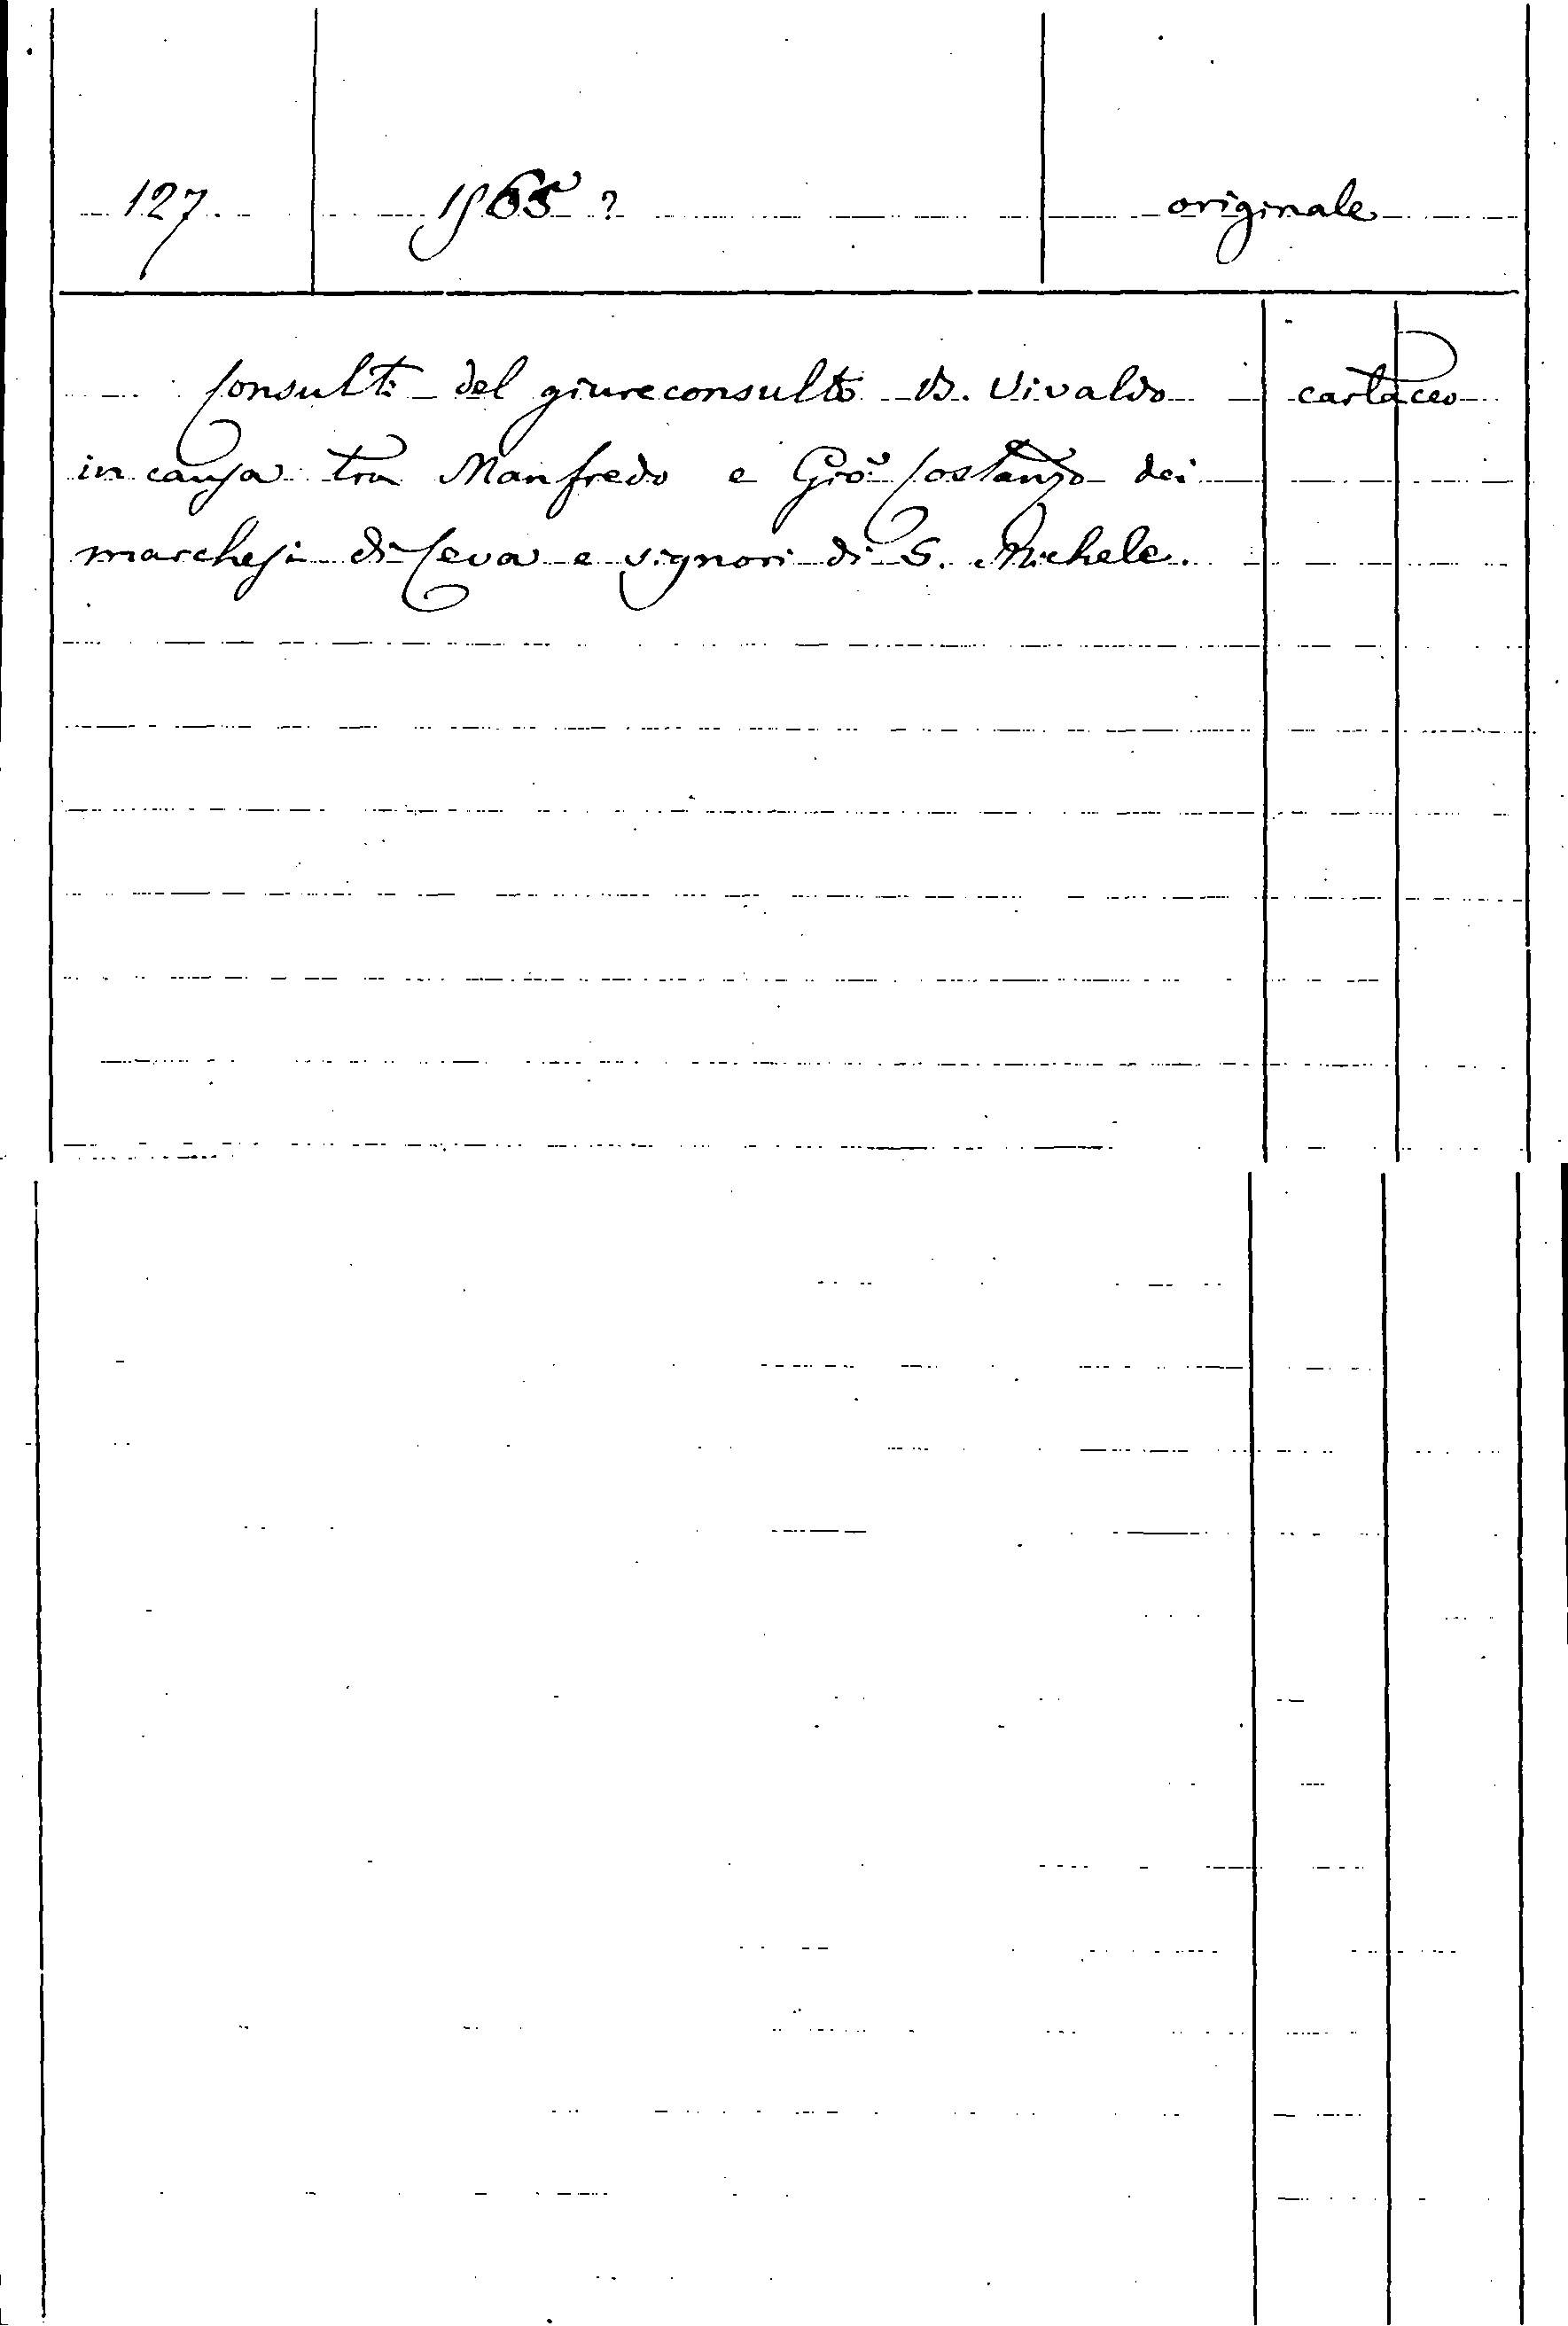 127. 1565 ? originale
Consulti del giureconsulto B. Vivaldo cartaceo
in causa tra Manfredo e Gio Costanzo dei
marchesi di Ceva e signori di S. Michele.